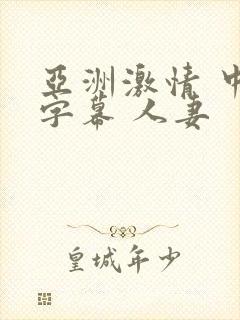 亞洲激情 中
字幕 人妻
皇城年少